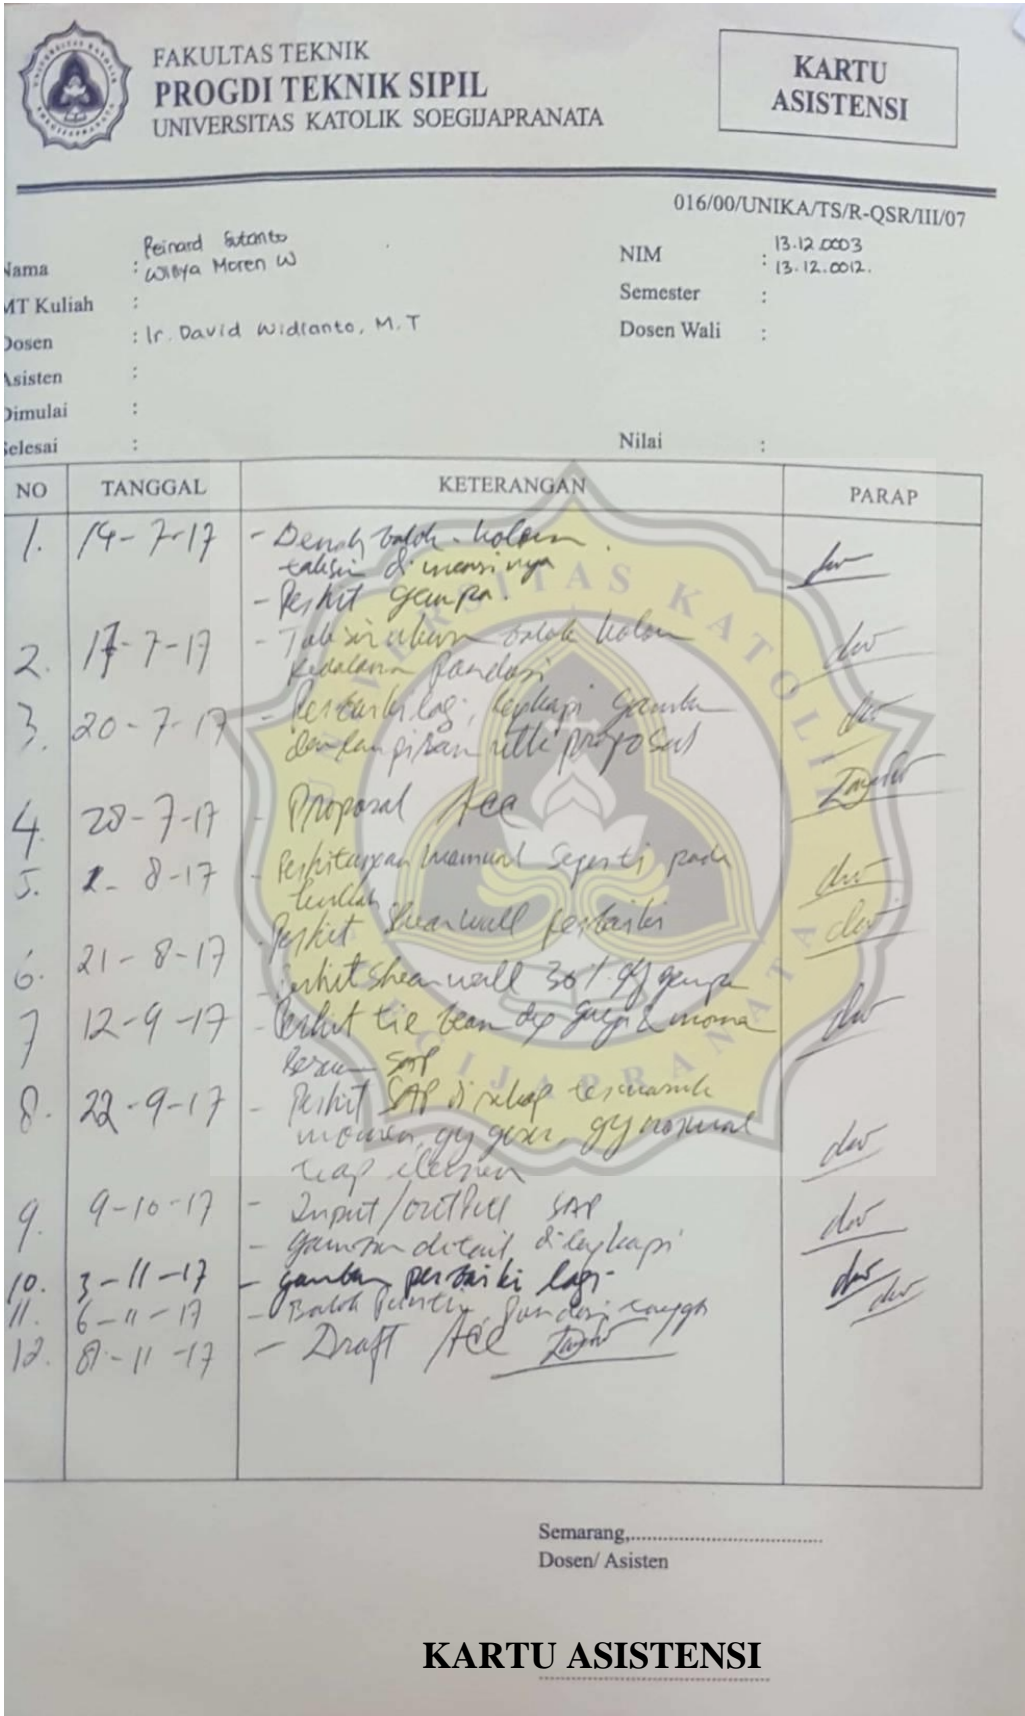 FAKULTAS TEKNIK
PROGDI TEKNIK SIPIL
UNIVERSITAS KATOLIK SOEGIJAPRANATA
KARTU
ASISTENSI
016/00/UNIKA/TS/R-QSR/III/07
Nama : Reinard Sutanto
Widya Moren W
NIM : 13.12.0003
13.12.0012.
MT Kuliah :
Semester :
Dosen : Ir. David Widianto, M.T
Dosen Wali :
Asisten :
Dimulai :
Selesai :
Nilai :
NO TANGGAL KETERANGAN PARAP
1. 14-7-17 - Denah balok - kolom
taksir dimensinya
- Perhit gempa.
2. 17-7-17 - balok kolom
kedalaman pondasi
3. 20-7-17 - Perbaiki lagi, lengkapi gambar
proposal
4. 28-7-17 - Proposal Acc
5. 2-8-17 - Perhitungan manual seperti pada
6. 21-8-17 - Perhit Shearwall perbaiki
- perhit shear wall 30% gempa
7 12-9-17 - Perhit tie beam
SAP
8. 22-9-17 - Perhit SAP di rekap termasuk
momen, gy geser, gy normal
tiap elemen
9. 9-10-17 - Input/output SAP
- gambar detail dilengkapi
10. 3-11-17 - gambar perbaiki lagi.
11. 6-11-17 - Balok pondasi
12. 8-11-17 - Draft Acc
Semarang,
Dosen/ Asisten
KARTU ASISTENSI